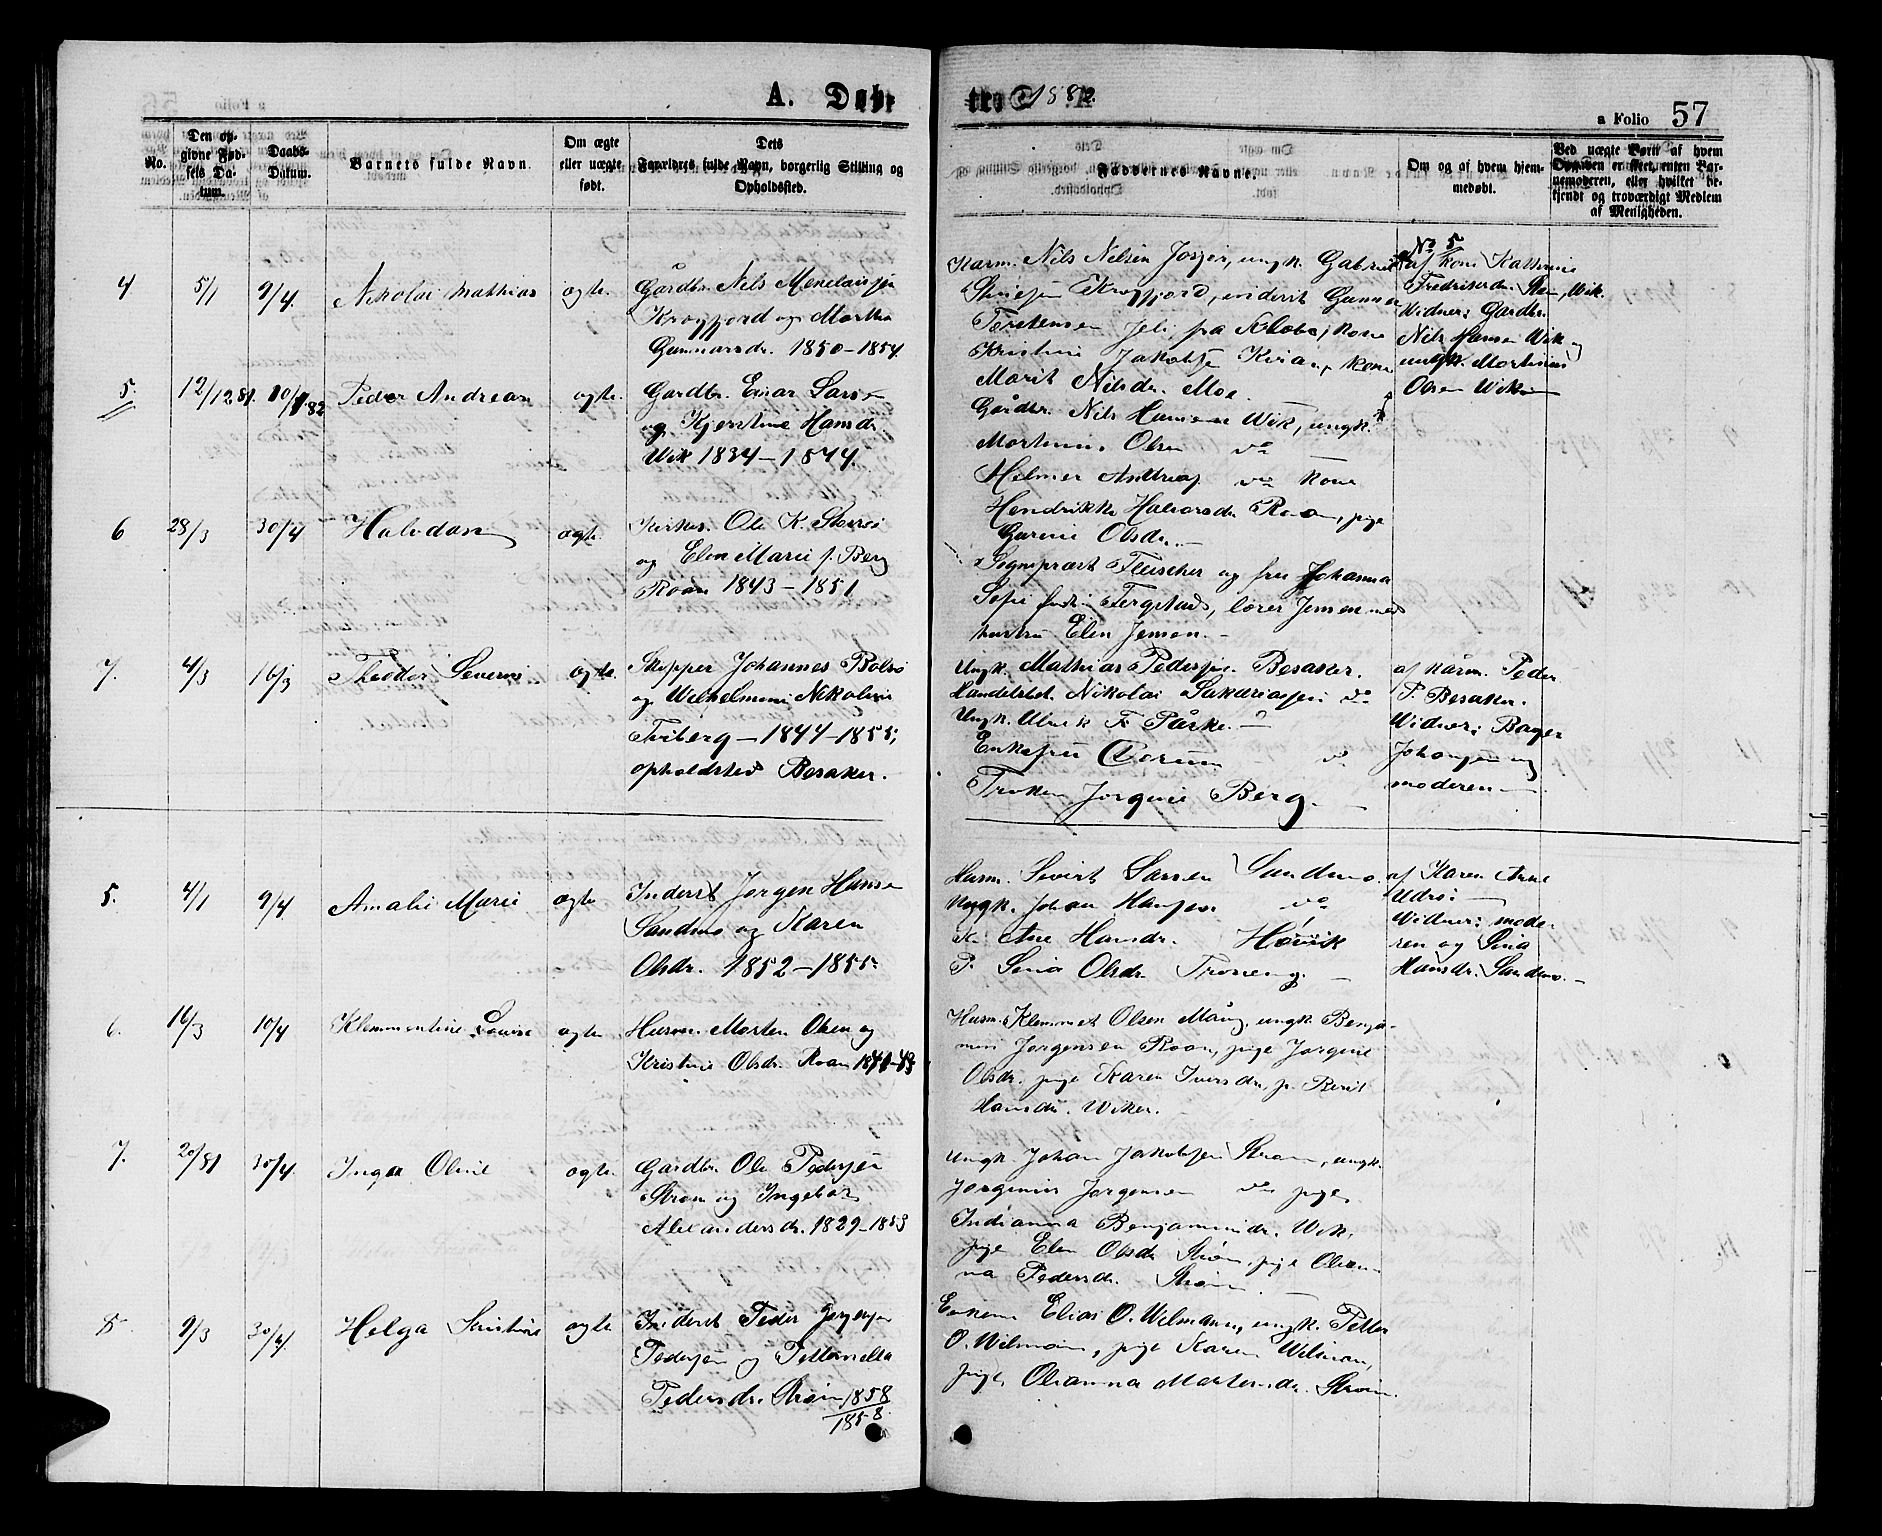 A. Døbte 1882.
a Folio 57
No.
Den op-
givne Fød-
sels Da-
tum.
Daabs-
Datum.
Barnets fulde Navn.
Om ægte
eller uægte
født.
Dets
Forældres fulde Navn, borgerlig Stilling og
Opholdssted.
Faddernes Navne.
Om og af hvem hjem-
medøbt.
Ved uægte Børn af hvem
Opgaven er skeet, enten Bar-
nemoderen, eller hvilket be-
kjendt og troværdigt Medlem
af Menigheden.
4 5/1 9/4. Nikolai Mathias ægte.
Gårdbr. Nils Menelausen
Krogfjord og Martha
Gunnarsdr. 1850-1854.
Karm. Nils Nilsen Josjer, ungk. Gabriel
Krogfjord, inderst Gunnar
Torstensen fra kone
Kristine Jakobs Kiran, kone
Marit Nilsdr. Moe.
5. 12/12 81. 10/4 82 Peder Andreas ægte.
Gardbr. Einar Larsen
og Kjerstine Hansdr.
Wik 1834-1844.
Gårdbr. Nils Hansen Wik, ungk.
Martinus Olsen do
Helmer Andreas do kone
Hendrikke Halvorsdr. Roan, pige
Gurine Olsdr.
No 5
af kone Kathrine
Fredriksdr. Wik.
Widner: Gardbr.
Nils Hansen Wik og
ungk. Martinus
Olsen Wik
6 28/3 30/4 Halvdan ægte.
Kirkes. Ole K. Sterei
og Elen Marie f. Berg
Roan 1843-1851
Sognepræst Fleischer og fru Johanna
Sofie Fergstad, lærer Jensen med
hustru Elen Jensen.
7. 4/3 16/3 Theodor Severin ægte.
Skipper Johannes Bolsø
og Wilhelmine Nikoline
Friberg - 1844-1855,
opholdsted Besaker.
Ungk. Mathias Pedersen Besaker.
Handelsbet. Nikolai Sakariasen do
Ungk. Ulrik F. Påske.
Enkefru do
Frøken Jørgine Berg.
af kårm. Peder
P. Besaker.
Widner: Bager
Johansen og
moderen
5. 4/1 9/4 Amalie Marie ægte
Inderst Jørgen Hansen
Sandmo og Karen
Olsdr. 1852-1855.
Husm. Sivert Larsen Sandmo.
Ungk. Johan Hansen do
K. Ane Hansdr. Høivik
P. Sina Olsdr. Troneng
af Karen Ane
Udrøi
Widner: mode-
ren og Sina
Hansdr. Sandmo.
6. 16/3 10/4 Klemmentine Lovise ægte
Husm. Morten Olsen og
Kristine Olsdr. Roan
Husm. Klemmet Olsen Mång, ungk. Benja-
min Jørgensen Roan, pige Jørgine
Olsdr. pige Karen Iversdr. p. Berit
Hansdr. Wiken.
7. 20/ 81 30/4 Inga Oline ægte.
Gardbr. Ole Pedersen
Strøm og Ingebor
Alexandersdr. 1829-1853
Ungk. Johan Jakobsen Strøm, ungk.
Jørginus Jørgensen do pige
Indianna Benjaminsdr. Wik,
pige Elen Olsdr. Strøm, pige Olean-
na Pedersdr. Strøm
8. 9/3 30/4 Helga Kristine ægte
Inderst Peder Jørgen
Pedersen og Petternella
Pedersdr. Strøm 1858
1858.
Enkem. Elias O. Wilmann, ungk. Petter
O. Wilmann, pige Karen Wilman,
pige Oleanna Martinsdr. Strøm.